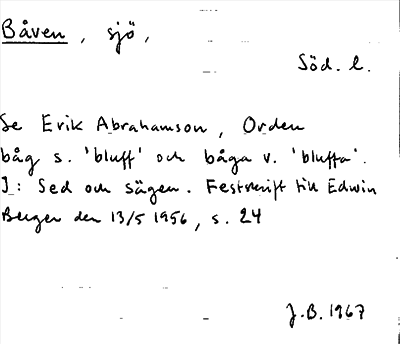 Båven, sjö,
Söd. l.
Se Erik Abrahamson, Orden
båg s. 'bluff' och båga v. 'bluffa'.
I: Sed och sägen. Festskrift till Edwin
Berger den 13/5 1956, s. 24
J.B. 1967